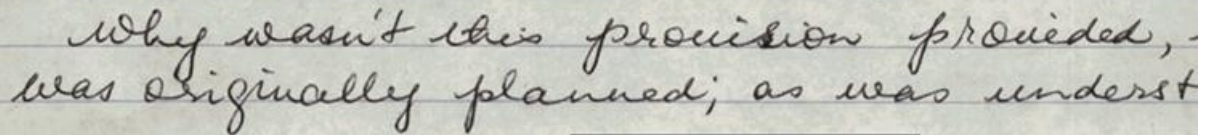 why wasn't this provision provided, -
was originally planned; as was underst